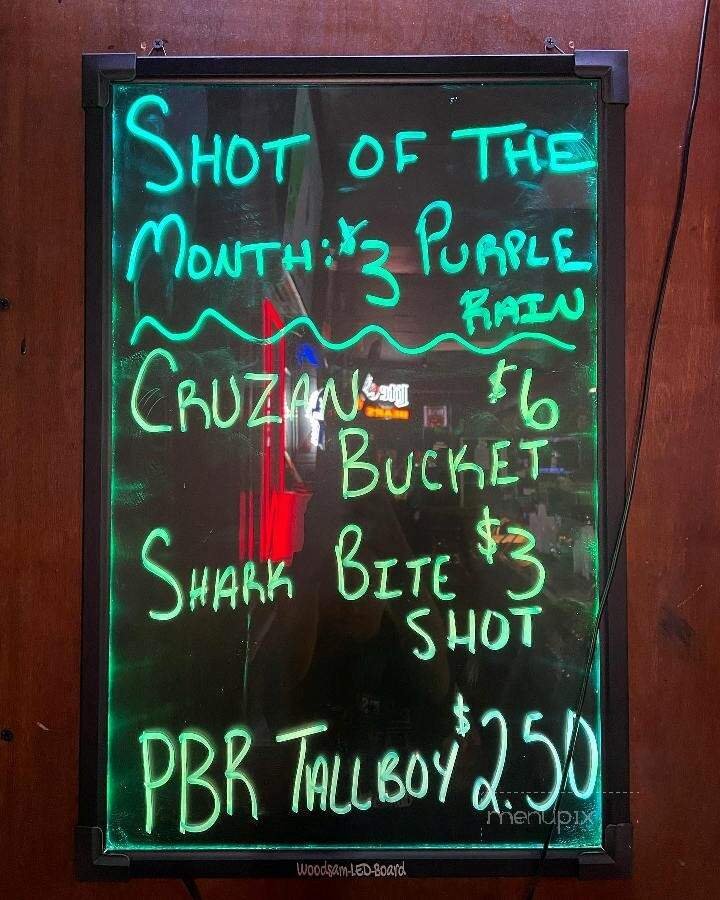 SHOT OF THE
MONTH: $3 PURPLE
RAIN
CRUZAN $6
BUCKET
SHARK BITE $3
SHOT
PBR TALLBOY $2.50
menupix
Woodsam-LED-Board